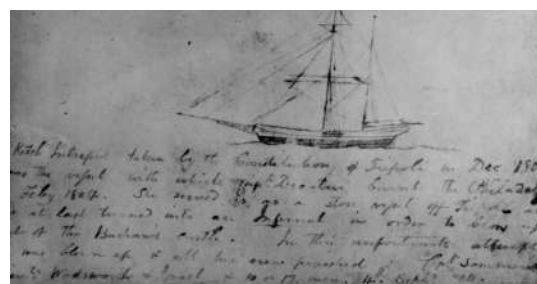 Ketch Intrepid taken by the Constitution of Tripoli in Dec 180
was the vessel with which Decatur burnt the Philadel
Feby 1804. She served as a store vessel off
at last turned into an Infernal in order to blow up
of the Bashaws castle. In this unfortunate attempt
was blown up & all her crew perished Capt Sommers
Wadsworth & Israel & 10 or men. Sept